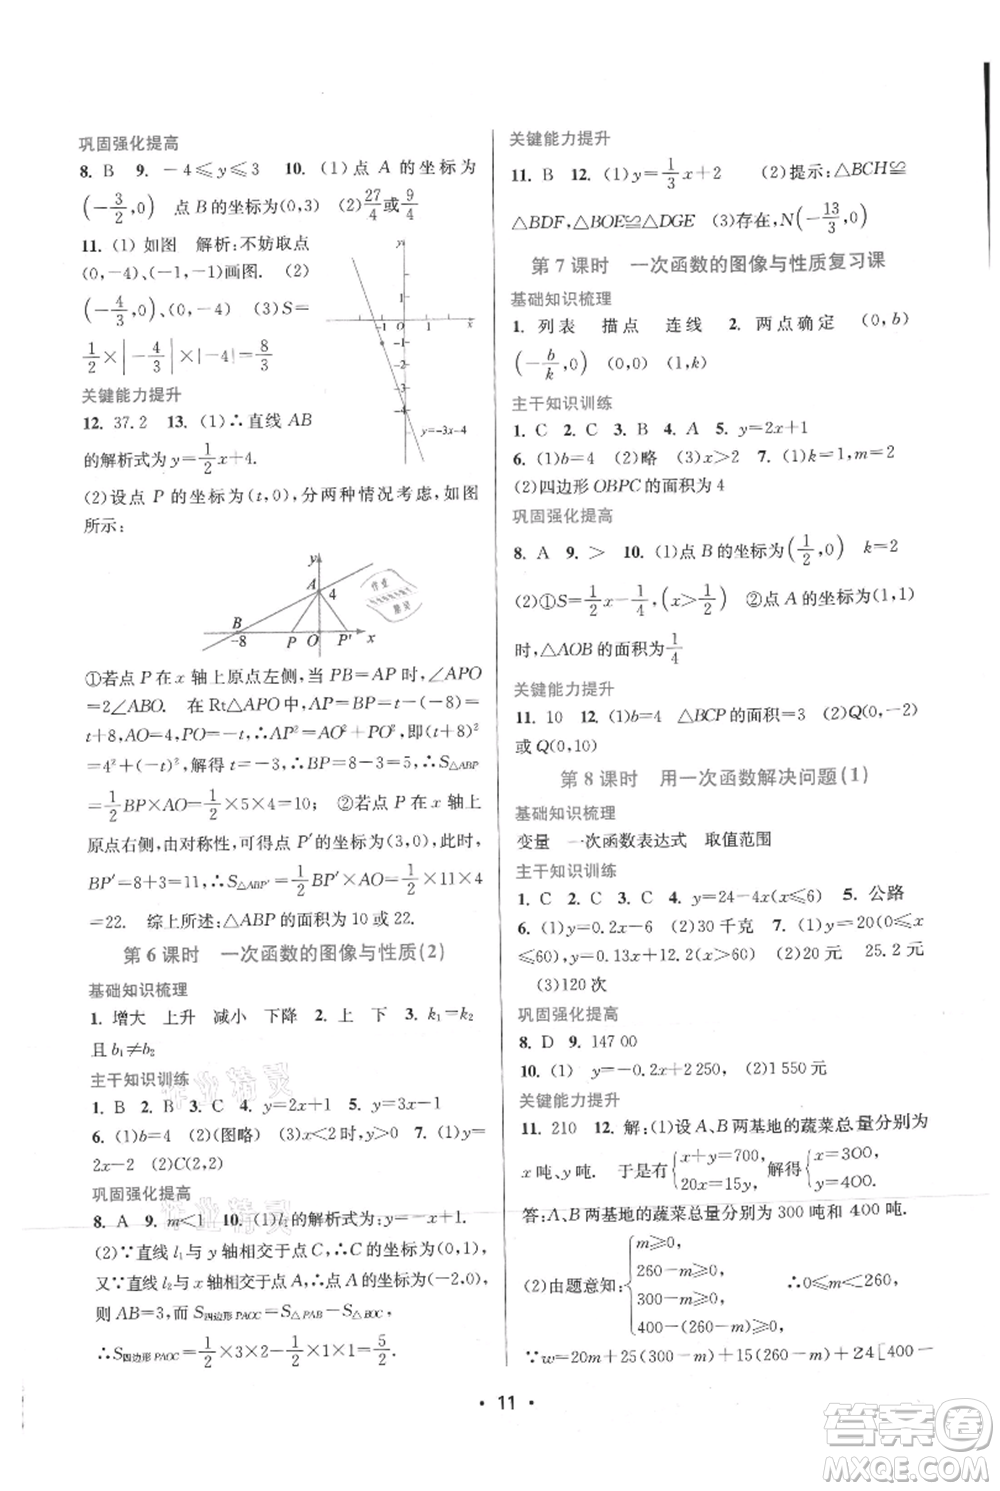 巩固强化提高
8. B 9. －4≤y≤3 10. (1)点 A 的坐标为
(－3/2,0) 点 B 的坐标为(0,3) (2)27/4或9/4
11. (1) 如图 解析:不妨取点
(0,－4)、(－1,－1)画图. (2)
(－4/3,0)、(0,－4) (3)S＝
1/2×|－4/3|×|－4|＝8/3
y
1
－1 O 1 x
－1
－2
－3
－4
y=－3x－4
关键能力提升
12. 37.2 13. (1)∴直线 AB
的解析式为 y＝1/2x＋4.
(2)设点 P 的坐标为(t,0),分两种情况考虑,如图
所示:
y
A 4
B
－8 P O P′ x
①若点 P 在 x 轴上原点左侧,当 PB＝AP 时,∠APO
＝2∠ABO. 在 Rt△APO 中,AP＝BP＝t－(－8)＝
t＋8,AO＝4,PO＝－t,∴AP²＝AO²＋PO²,即(t＋8)²
＝4²＋(－t)²,解得:t＝－3,∴BP＝t＋8＝5,∴S△ABP
＝1/2BP×AO＝1/2×5×4＝10; ②若点 P 在 x 轴上
原点右侧,由对称性,可得点 P′的坐标为(3,0),此时,
BP′＝8＋3＝11,∴S△ABP′＝1/2BP′×AO＝1/2×11×4
＝22. 综上所述:△ABP 的面积为 10 或 22.
第 6 课时 一次函数的图像与性质(2)
基础知识梳理
1. 增大 上升 减小 下降 2. 上 下 3. k₁＝k₂
且 b₁≠b₂
主干知识训练
1. B 2. B 3. C 4. y＝2x＋1 5. y＝3x－1
6. (1)b＝4 (2)(图略) (3)x＜2 7. (1)y＝
2x－2 (2)C(2,2)
巩固强化提高
8. A 9. m＜1 10. (1)l₁的解析式为:y＝x＋2.
(2)∵直线 l₁与 y 轴相交于点 C,∴C 的坐标为(0,2),
又∵直线 l₁与 x 轴相交于点 A,∴A 点的坐标为(－2,0),
则 AB＝3,而 S四边形PAOC＝S△PAB－S△BOC,
∴S四边形PAOC＝1/2×3×2－1/2×1×1＝5/2.
关键能力提升
11. B 12. (1)y＝1/3x＋2 (2)提示:△BCH≌
△BDF,△BOE≌△DGE (3)存在,N(－13/3,0)
第 7 课时 一次函数的图像与性质复习课
基础知识梳理
1. 列表 描点 连线 2. 两点确定 (0,b)
(－b/k,0) (0,0) (1,k)
主干知识训练
1. C 2. C 3. B 4. A 5. y＝2x＋1
6. (1)b＝4 (2)略 (3)x＞2 7. (1)k＝1,m＝2
(2)四边形 OBPC 的面积为 4
巩固强化提高
8. A 9. ＞ 10. (1)点 B 的坐标为(1/2,0) k＝2
(2)①S＝1/2x－1/4,(x＞1/2) ②点 A 的坐标为(1,1)
时,△AOB 的面积为1/4
关键能力提升
11. 10 12. (1)b＝4 △BCP的面积＝3 (2)Q(0,－2)
或 Q(0,10)
第 8 课时 用一次函数解决问题(1)
基础知识梳理
变量 一次函数表达式 取值范围
主干知识训练
1. C 2. C 3. C 4. y＝24－4x(x≤6) 5. 公路
6. (1)y＝0.2x－6 (2)30 千克 7. (1)y＝0.2x(0≤x
≤60),y＝0.13x＋12.2(x＞60) (2)7.4 元 25.2 元
(3)120 次
巩固强化提高
8. D 9. 147 00
10. (1) y＝－0.2x＋2 250, (2)1 550 元
关键能力提升
11. 210 12. 解:(1)设 A、B 两基地的蔬菜总量分别为
x 吨、y 吨. 于是有{x＋y＝700, 20x＝15y, 解得{x＝300, y＝400.
答:A、B 两基地的蔬菜总量分别为 300 吨和 400 吨.
(2)由题意知:{m≥0, 260－m≥0, 300－m≥0, 400－(260－m)≥0, ∴0≤m≤260,
∵w＝20m＋25(300－m)＋15(260－m)＋24[400－
· 11 ·
作业精灵
作业精灵
答案圈
MXQE.COM